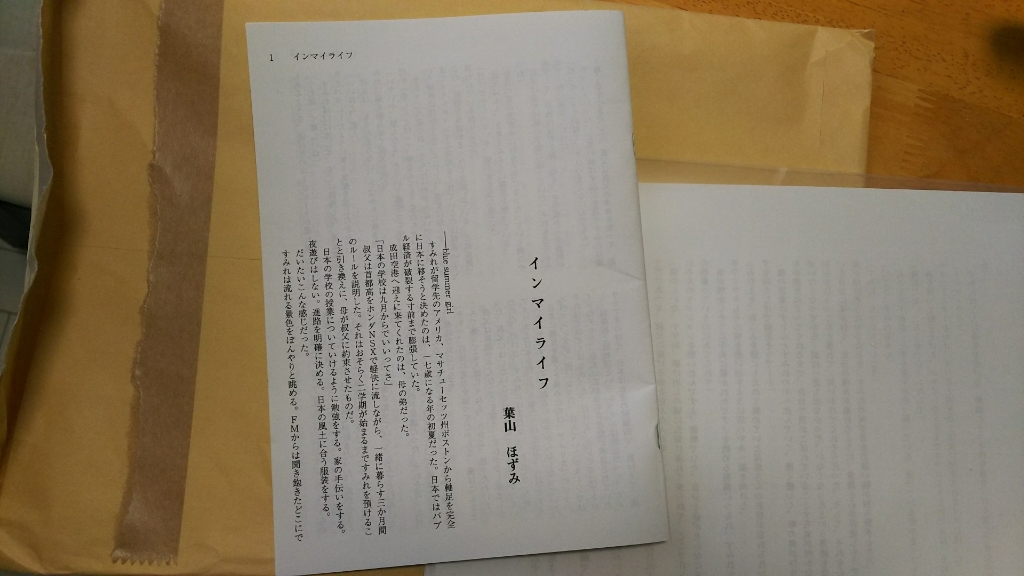 1 インマイライフ
インマイライフ
葉山 ほずみ
――blue summer girl
すみれが留学先のアメリカ、マサチューセッツ州ボストンから軸足を完全
に日本に移そうと決めたのは、一七歳になる年の初夏だった。日本ではバブ
ル経済が破裂する寸前まで膨張していた。
成田空港へ迎えに来てくれたのは、母の弟だった。
「日本の学校は九月からでいいってさ」
叔父は首都高をホンダNSXで軽快に流しながら、一緒に暮らす三か月間
のルールを説明した。それはおそらく二学期が始まるまですみれを預けるこ
とと引き換えに、母が叔父に約束させたものだ。
日本の学校の授業についていけるように勉強をする。家の手伝いをする。
夜遊びはしない。進路を明確に決める。日本の風土に合う服装をする。
だいたいこんな感じだった。
すみれは流れる景色をぼんやりと眺める。FMからは聞き飽きたどこにで